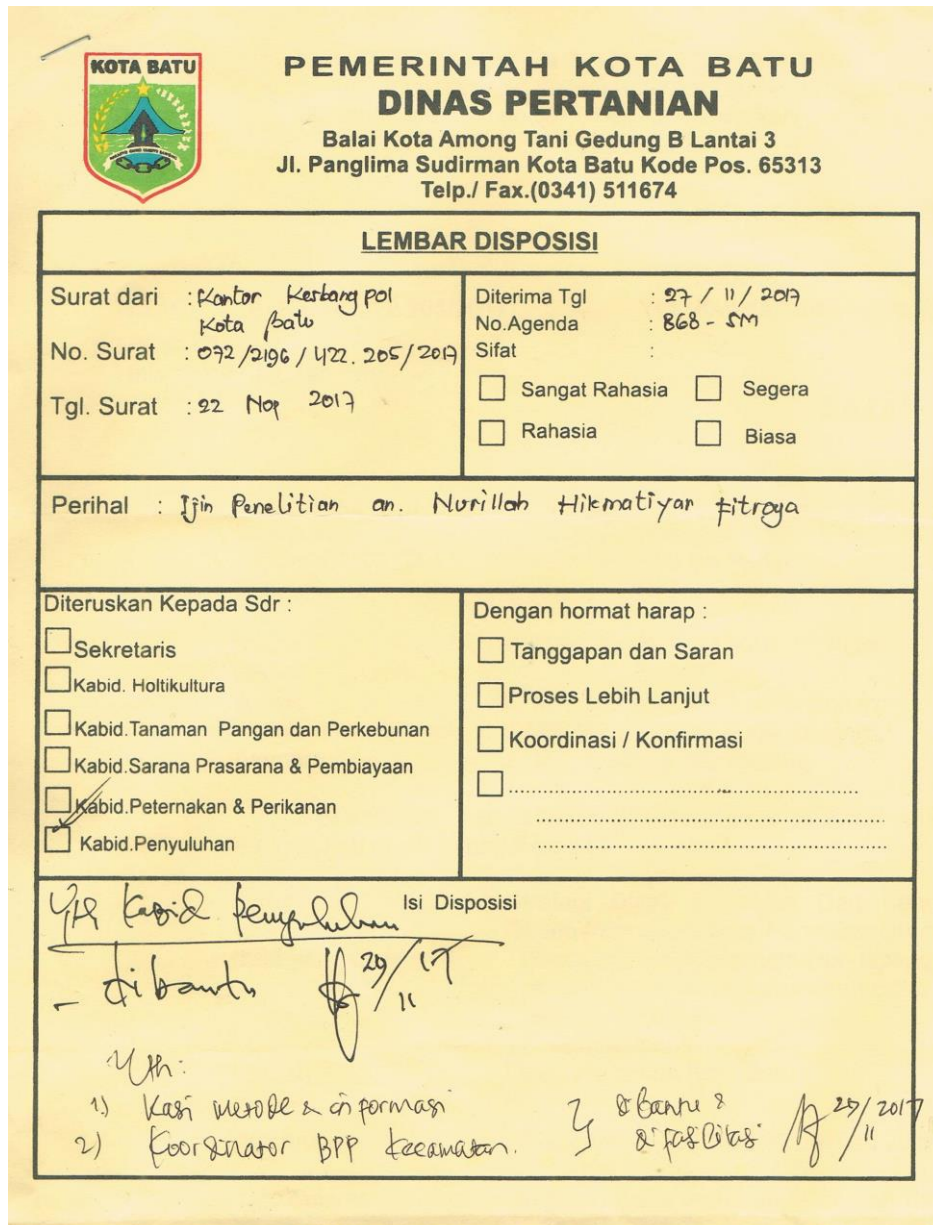 KOTA BATU
PEMERINTAH KOTA BATU
DINAS PERTANIAN
Balai Kota Among Tani Gedung B Lantai 3
Jl. Panglima Sudirman Kota Batu Kode Pos. 65313
Telp./ Fax.(0341) 511674
LEMBAR DISPOSISI
Surat dari : Kantor Kesbangpol
Kota Batu
No. Surat : 072/2196/422.205/2017
Tgl. Surat : 22 Nop 2017
Diterima Tgl : 27/11/2017
No.Agenda : 868 - SM
Sifat :
Sangat Rahasia Segera
Rahasia Biasa
Perihal : Ijin Penelitian an. Nurillah Hikmatiyar Fitroya
Diteruskan Kepada Sdr :
Sekretaris
Kabid. Holtikultura
Kabid.Tanaman Pangan dan Perkebunan
Kabid.Sarana Prasarana & Pembiayaan
Kabid.Peternakan & Perikanan
Kabid.Penyuluhan
Dengan hormat harap :
Tanggapan dan Saran
Proses Lebih Lanjut
Koordinasi / Konfirmasi
Isi Disposisi
Yth Kabid Penyuluhan
- dibantu 29/11 17
Yth:
1.) Kasi metode & informasi
2) Koordinator BPP Kecamatan.
dibantu &
difasilitasi 29/11 2017